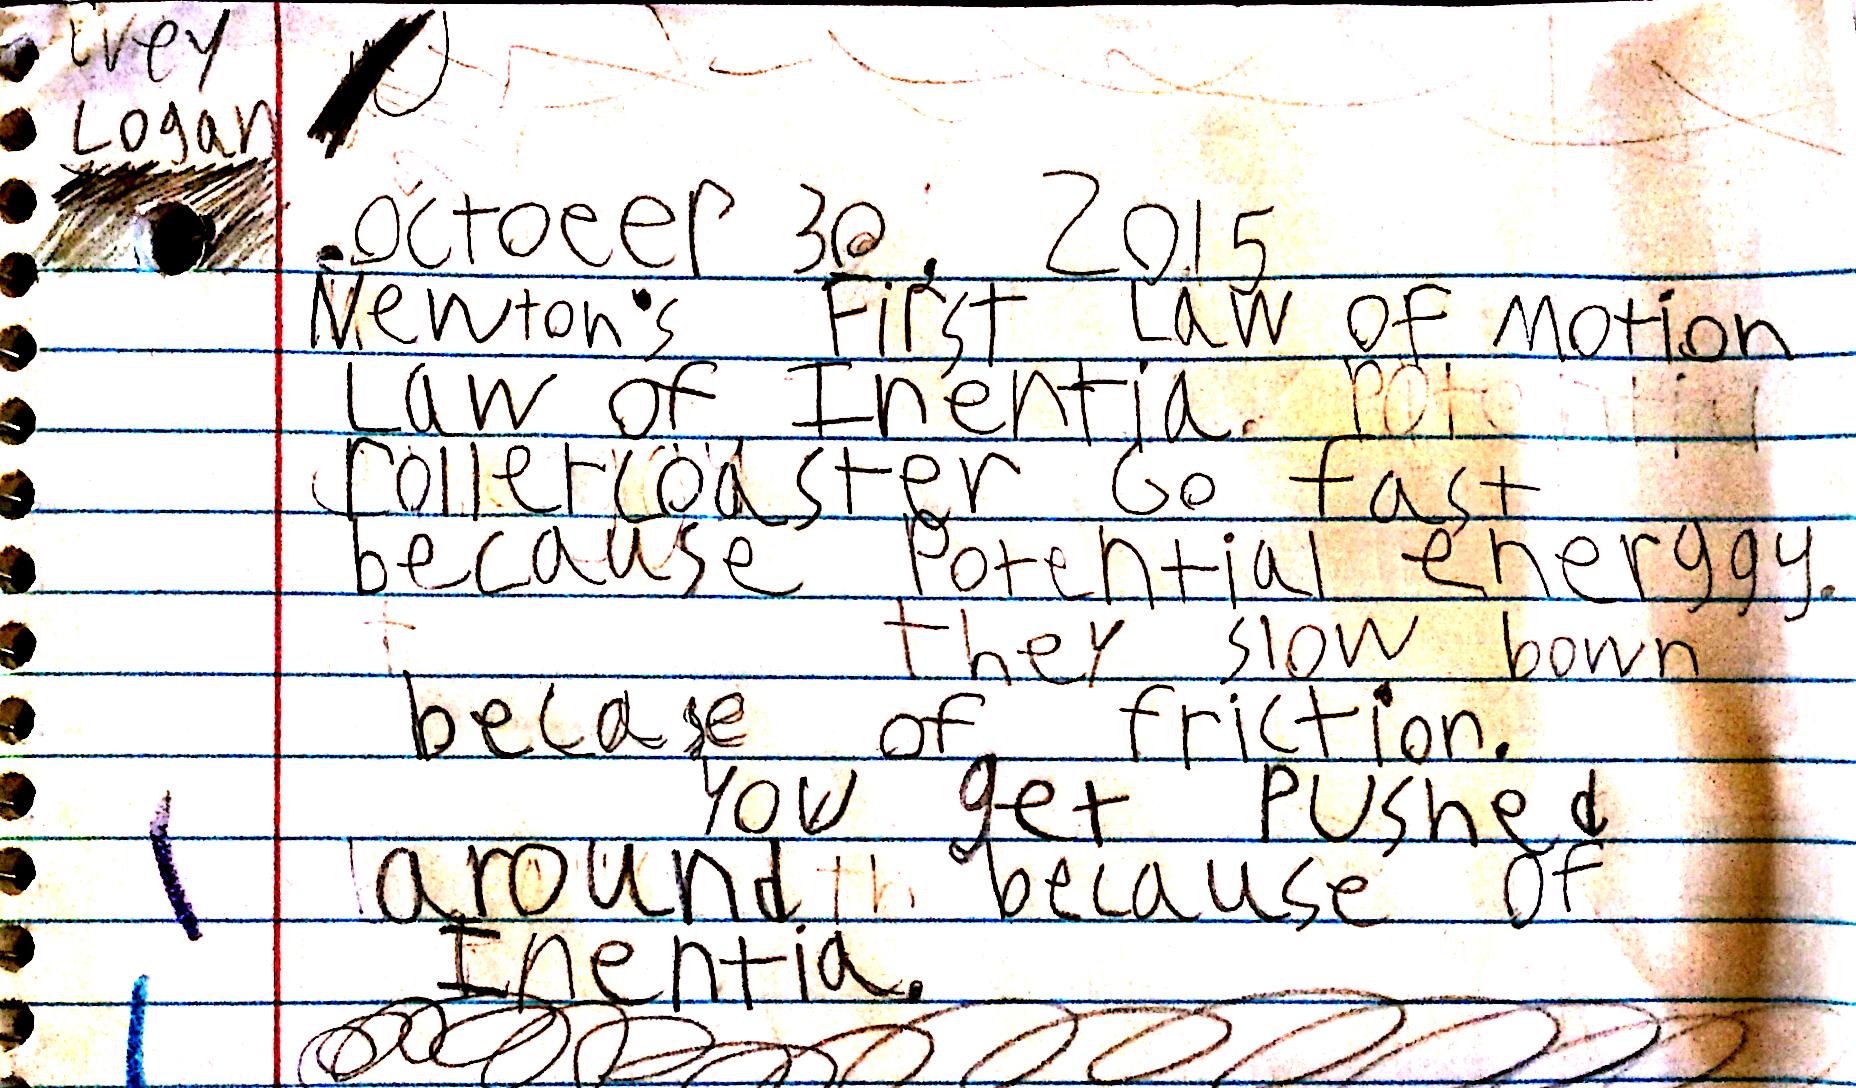 Ivey
Logan
.octoeer 30, 2015
Newton's First Law of Motion
Law of Inentia. Potential
rollercoaster Go fast
because Potential energgy.
they slow bown
becase of friction.
You get Pushed
around th because of
Inentia.